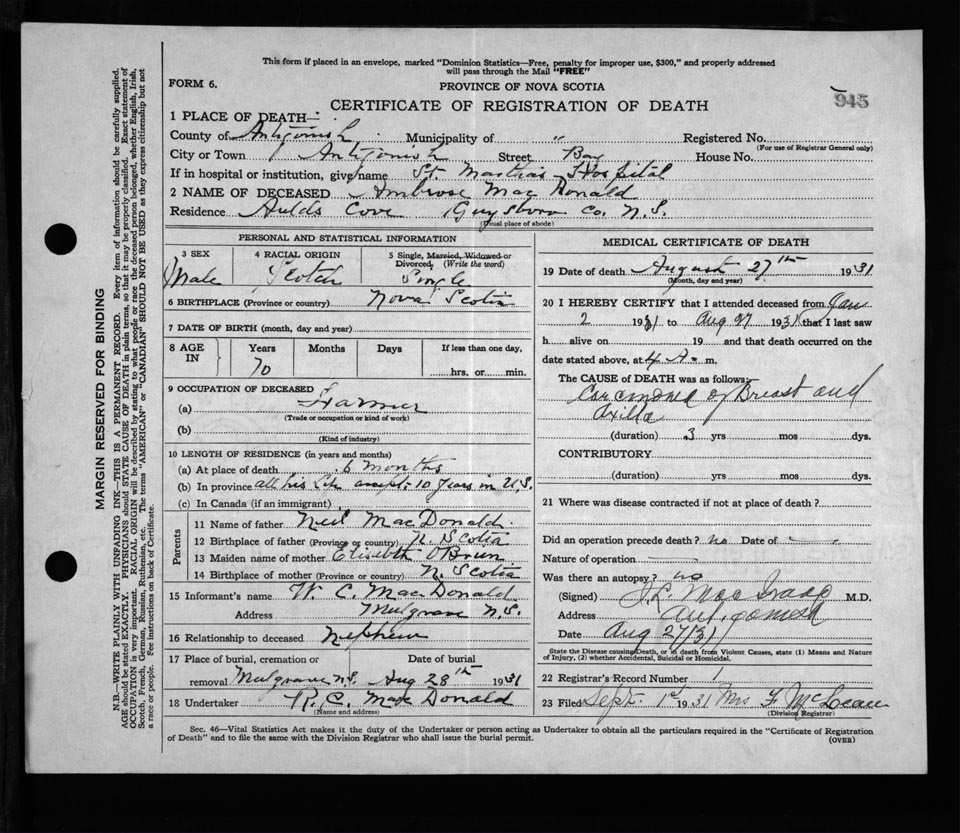 This form if placed in an envelope, marked "Dominion Statistics—Free, penalty for improper use, $300," and properly addressed
will pass through the Mail "FREE"
FORM 6.
PROVINCE OF NOVA SCOTIA
945
CERTIFICATE OF REGISTRATION OF DEATH
1 PLACE OF DEATH—
County of Antigonish Municipality of " Registered No.
(For use of Registrar General only)
City or Town Antigonish Street Bay House No.
If in hospital or institution, give name St. Martha's Hospital
2 NAME OF DECEASED Ambrose MacDonald
Residence Aulds Cove Guysboro Co. N.S.
(Usual place of abode)
PERSONAL AND STATISTICAL INFORMATION
3 SEX 4 RACIAL ORIGIN 5 Single, Married, Widowed or
Divorced, (Write the word)
Male Scotch Single
6 BIRTHPLACE (Province or country) Nova Scotia
7 DATE OF BIRTH (month, day and year)
8 AGE IN Years Months Days If less than one day,
70 hrs. or min.
9 OCCUPATION OF DECEASED
(a) Farmer
(Trade or occupation or kind of work)
(b)
(Kind of industry)
10 LENGTH OF RESIDENCE (in years and months)
(a) At place of death 6 months
(b) In province all his life 10 years in U.S.
(c) In Canada (if an immigrant)
Parents
11 Name of father Neil MacDonald
12 Birthplace of father (Province or country) N. Scotia
13 Maiden name of mother Elisebeth O'Brien
14 Birthplace of mother (Province or country) N. Scotia
15 Informant's name W. C. MacDonald
Address Mulgrave N.S.
16 Relationship to deceased Nephew
17 Place of burial, cremation or Date of burial
removal Mulgrave N.S. Aug 28th 1931
18 Undertaker R. C. MacDonald
(Name and address)
MEDICAL CERTIFICATE OF DEATH
19 Date of death August 27th 1931
(Month, day and year)
20 I HEREBY CERTIFY that I attended deceased from Jan
2 1931 to Aug 27 1931 that I last saw
h alive on 19 and that death occurred on the
date stated above, at 4 A. m.
The CAUSE OF DEATH was as follows:
Carcinoma of Breast and
Axilla
(duration) 3 yrs mos dys.
CONTRIBUTORY
(duration) yrs mos dys.
21 Where was disease contracted if not at place of death?
Did an operation precede death? no Date of
Nature of operation
Was there an autopsy? no
(Signed) MacIsaac M.D.
Address Antigonish
Date Aug 27/31
State the Disease causing Death, or in death from Violent Causes, state (1) Means and Nature
of Injury, (2) whether Accidental, Suicidal or Homicidal.
22 Registrar's Record Number 1
23 Filed Sept. 1st 1931 Mrs F. McLean
(Division Registrar)
Sec. 46—Vital Statistics Act makes it the duty of the Undertaker or person acting as Undertaker to obtain all the particulars required in the "Certificate of Registration
of Death" and to file the same with the Division Registrar who shall issue the burial permit.
(OVER)
MARGIN RESERVED FOR BINDING
N.B.—WRITE PLAINLY WITH UNFADING INK—THIS IS A PERMANENT RECORD. Every item of information should be carefully supplied.
AGE should be stated EXACTLY. PHYSICIANS should STATE CAUSE OF DEATH in plain terms, so that it may be properly classified. Exact statement of
OCCUPATION is very important. RACIAL ORIGIN will be described by stating to what people or race the deceased person belonged, whether English, Irish,
Scotch, French, German, Russian, Ruthenian, etc. The terms "AMERICAN" or "CANADIAN" SHOULD NOT BE USED as they express citizenship but not
a race or people. See instructions on back of Certificate.